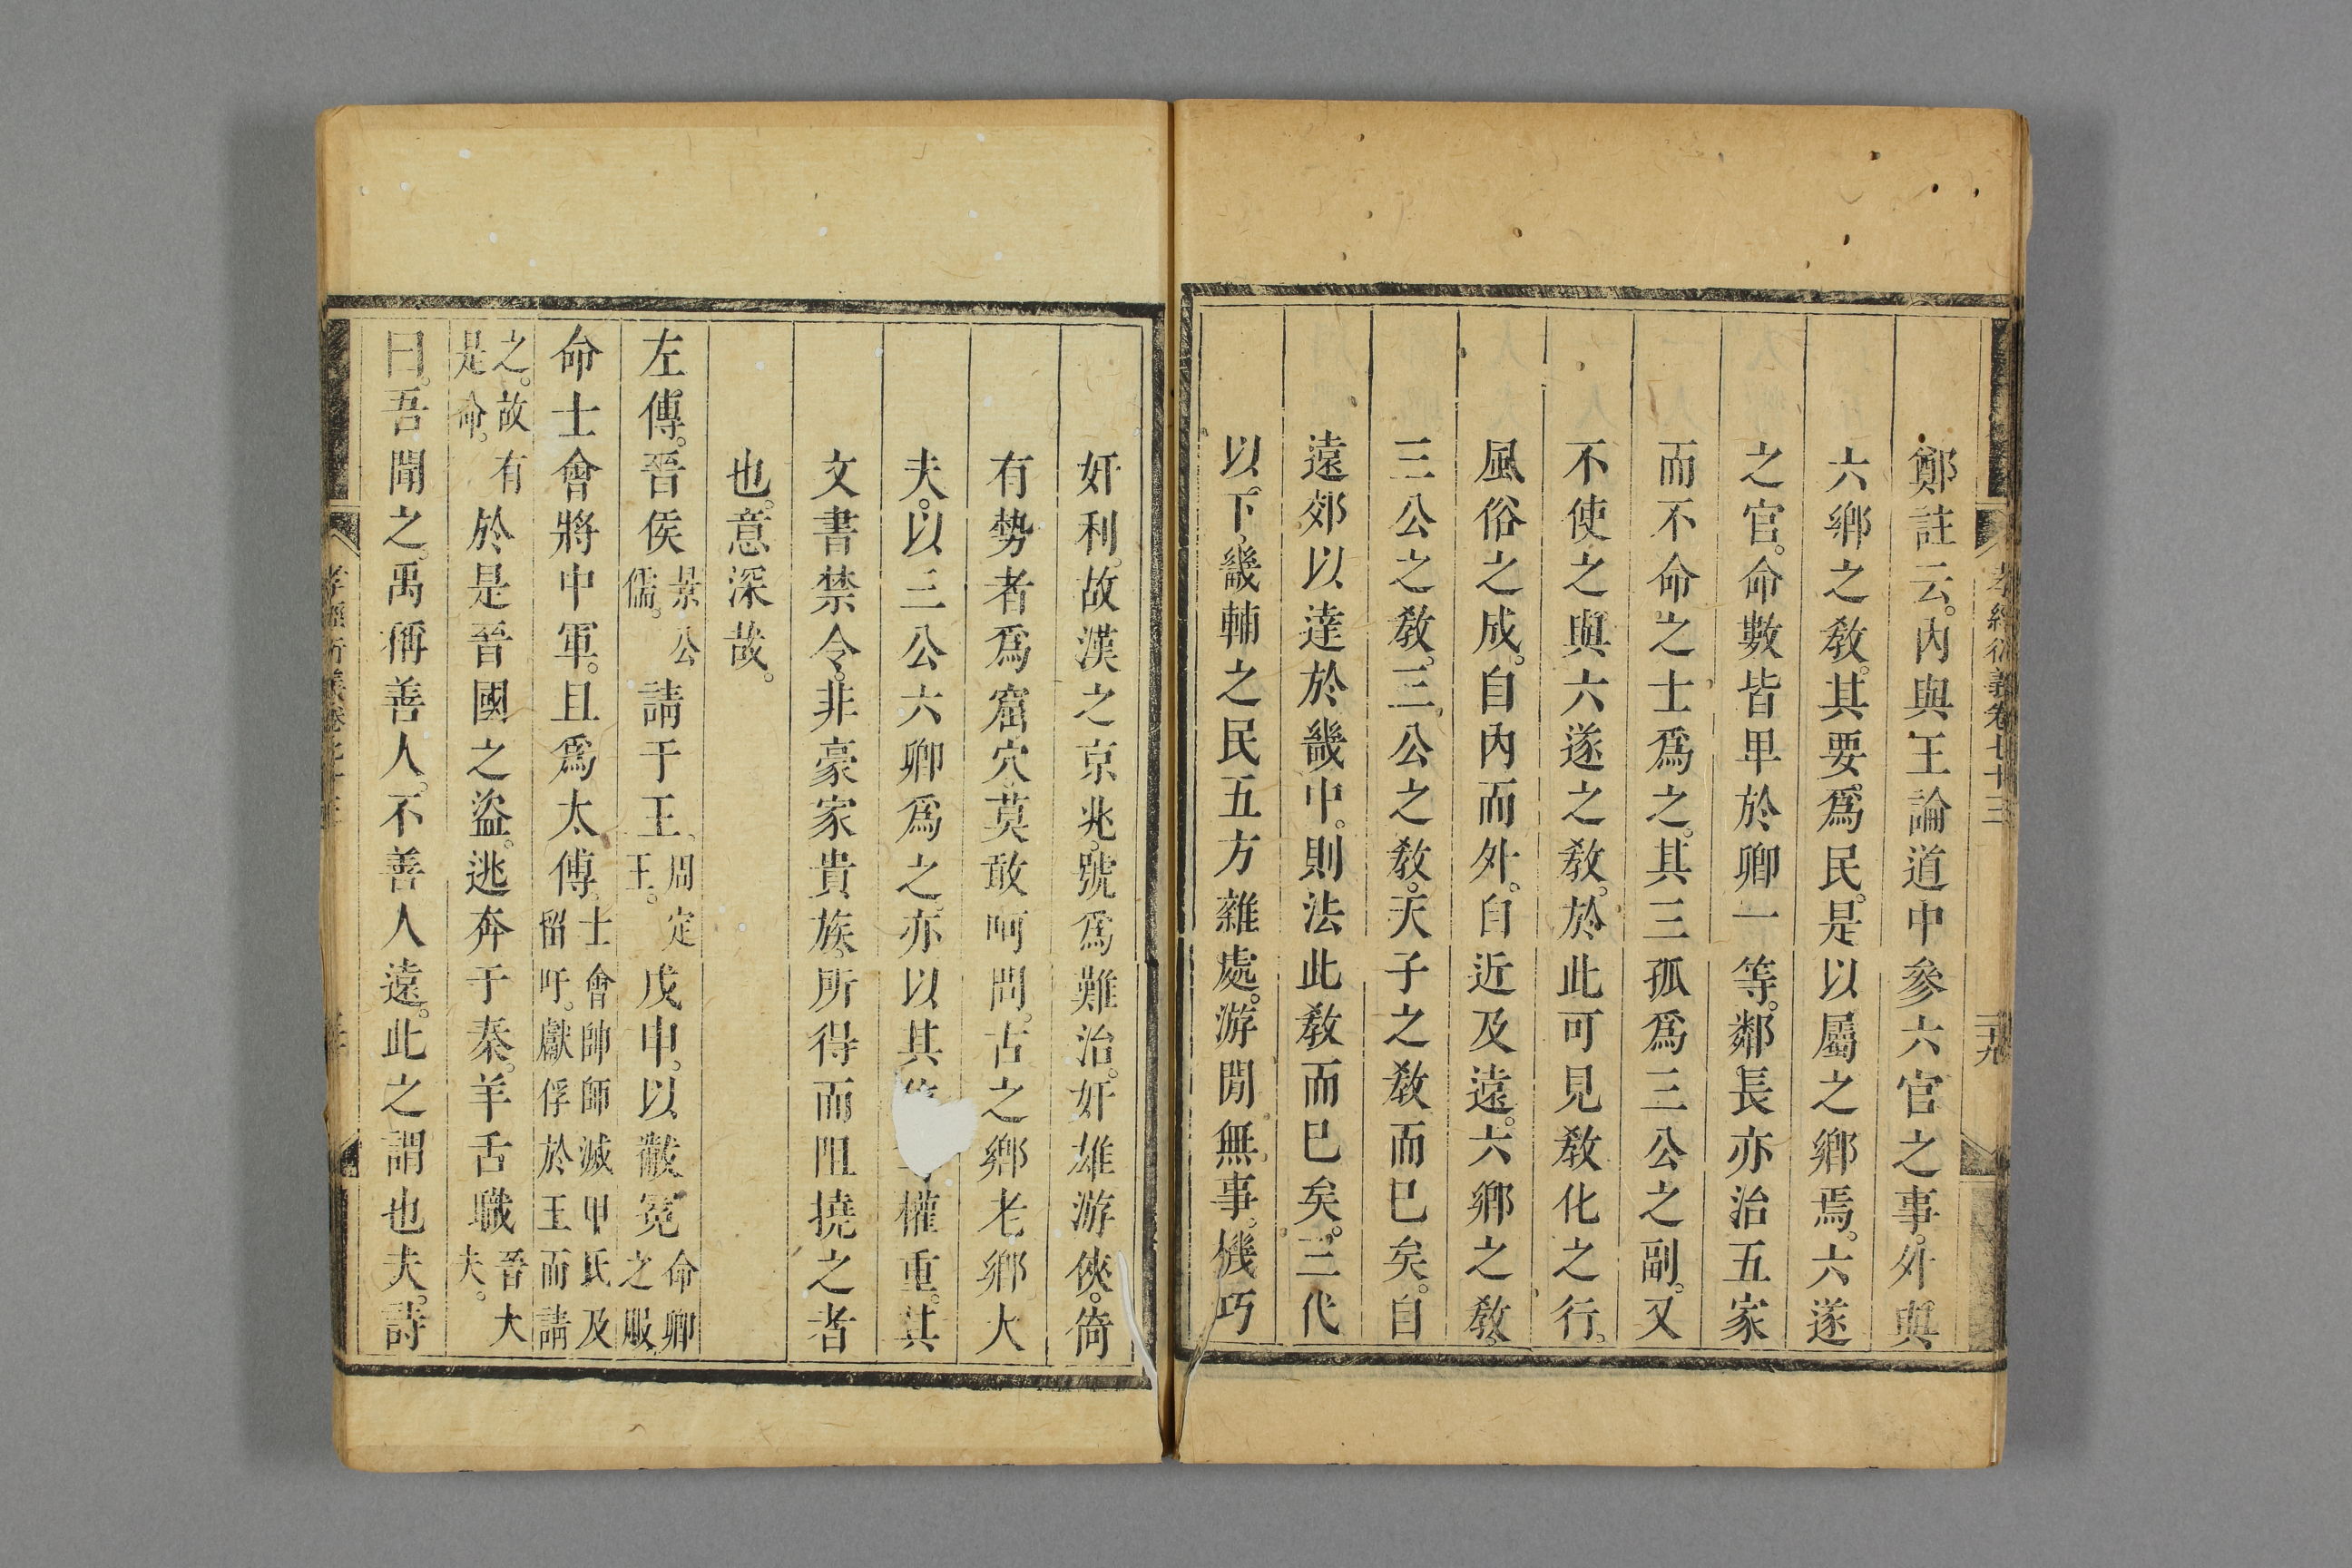 鄭註云。內與王論道中參六官之事。外與
六鄉之教。其要爲民。是以屬之鄉焉。六遂
之官。命數皆卑於卿一等。鄰長亦治五家
而不命之士爲之。其三孤爲三公之副。又
不使之與六遂之教。於此可見教化之行。
風俗之成。自內而外。自近及遠。六鄉之教。
三公之教。三公之教。天子之教而已矣。自
遠郊以達於畿中。則法此教而已矣。三代
以下。畿輔之民五方雜處。游閒無事。機巧
孝經衍義卷七十三
奸利。故漢之京兆。號爲難治。奸雄游俠。倚
有勢者爲窟穴。莫敢呵問。古之鄉老鄉大
夫。以三公六卿爲之。亦以其權重。其
文書禁令。非豪家貴族。所得而阻撓之者
也。意深哉。
左傳。晉侯景公儒。請于王。周定王。戊申。以黻冕命卿之服
命士會將中軍。且爲太傅。士會帥師滅甲氏及留吁。獻俘於王而請
之。故有是命。於是晉國之盜。逃奔于秦。羊舌職晉大夫。
曰。吾聞之。禹稱善人。不善人遠。此之謂也夫。詩